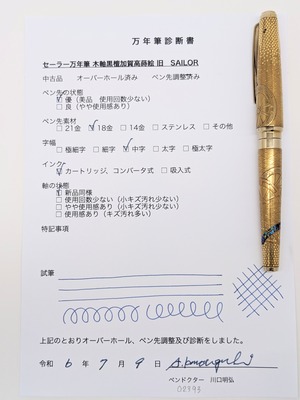 万年筆診断書
セーラー万年筆 木軸黒檀加賀高蒔絵 旧 SAILOR
中古品 オーバーホール済み ペン先調整済み
ペン先の状態
☑優（美品 使用回数少ない）
□良（やや使用感あり）
ペン先素材
□21金 ☑18金 □14金 □ステンレス □その他
字幅
□極細字 □細字 ☑中字 □太字 □極太字
インク
☑カートリッジ、コンバータ式 □吸入式
軸の状態
☑新品同様
□使用回数少ない（小キズ汚れ少ない）
□やや使用感あり（小キズ汚れ少ない）
□使用感あり（キズ汚れ多い）
特記事項
試筆
上記のとおりオーバーホール、ペン先調整及び診断をしました。
令和 6 年 7 月 9 日
ペンドクター 川口明弘